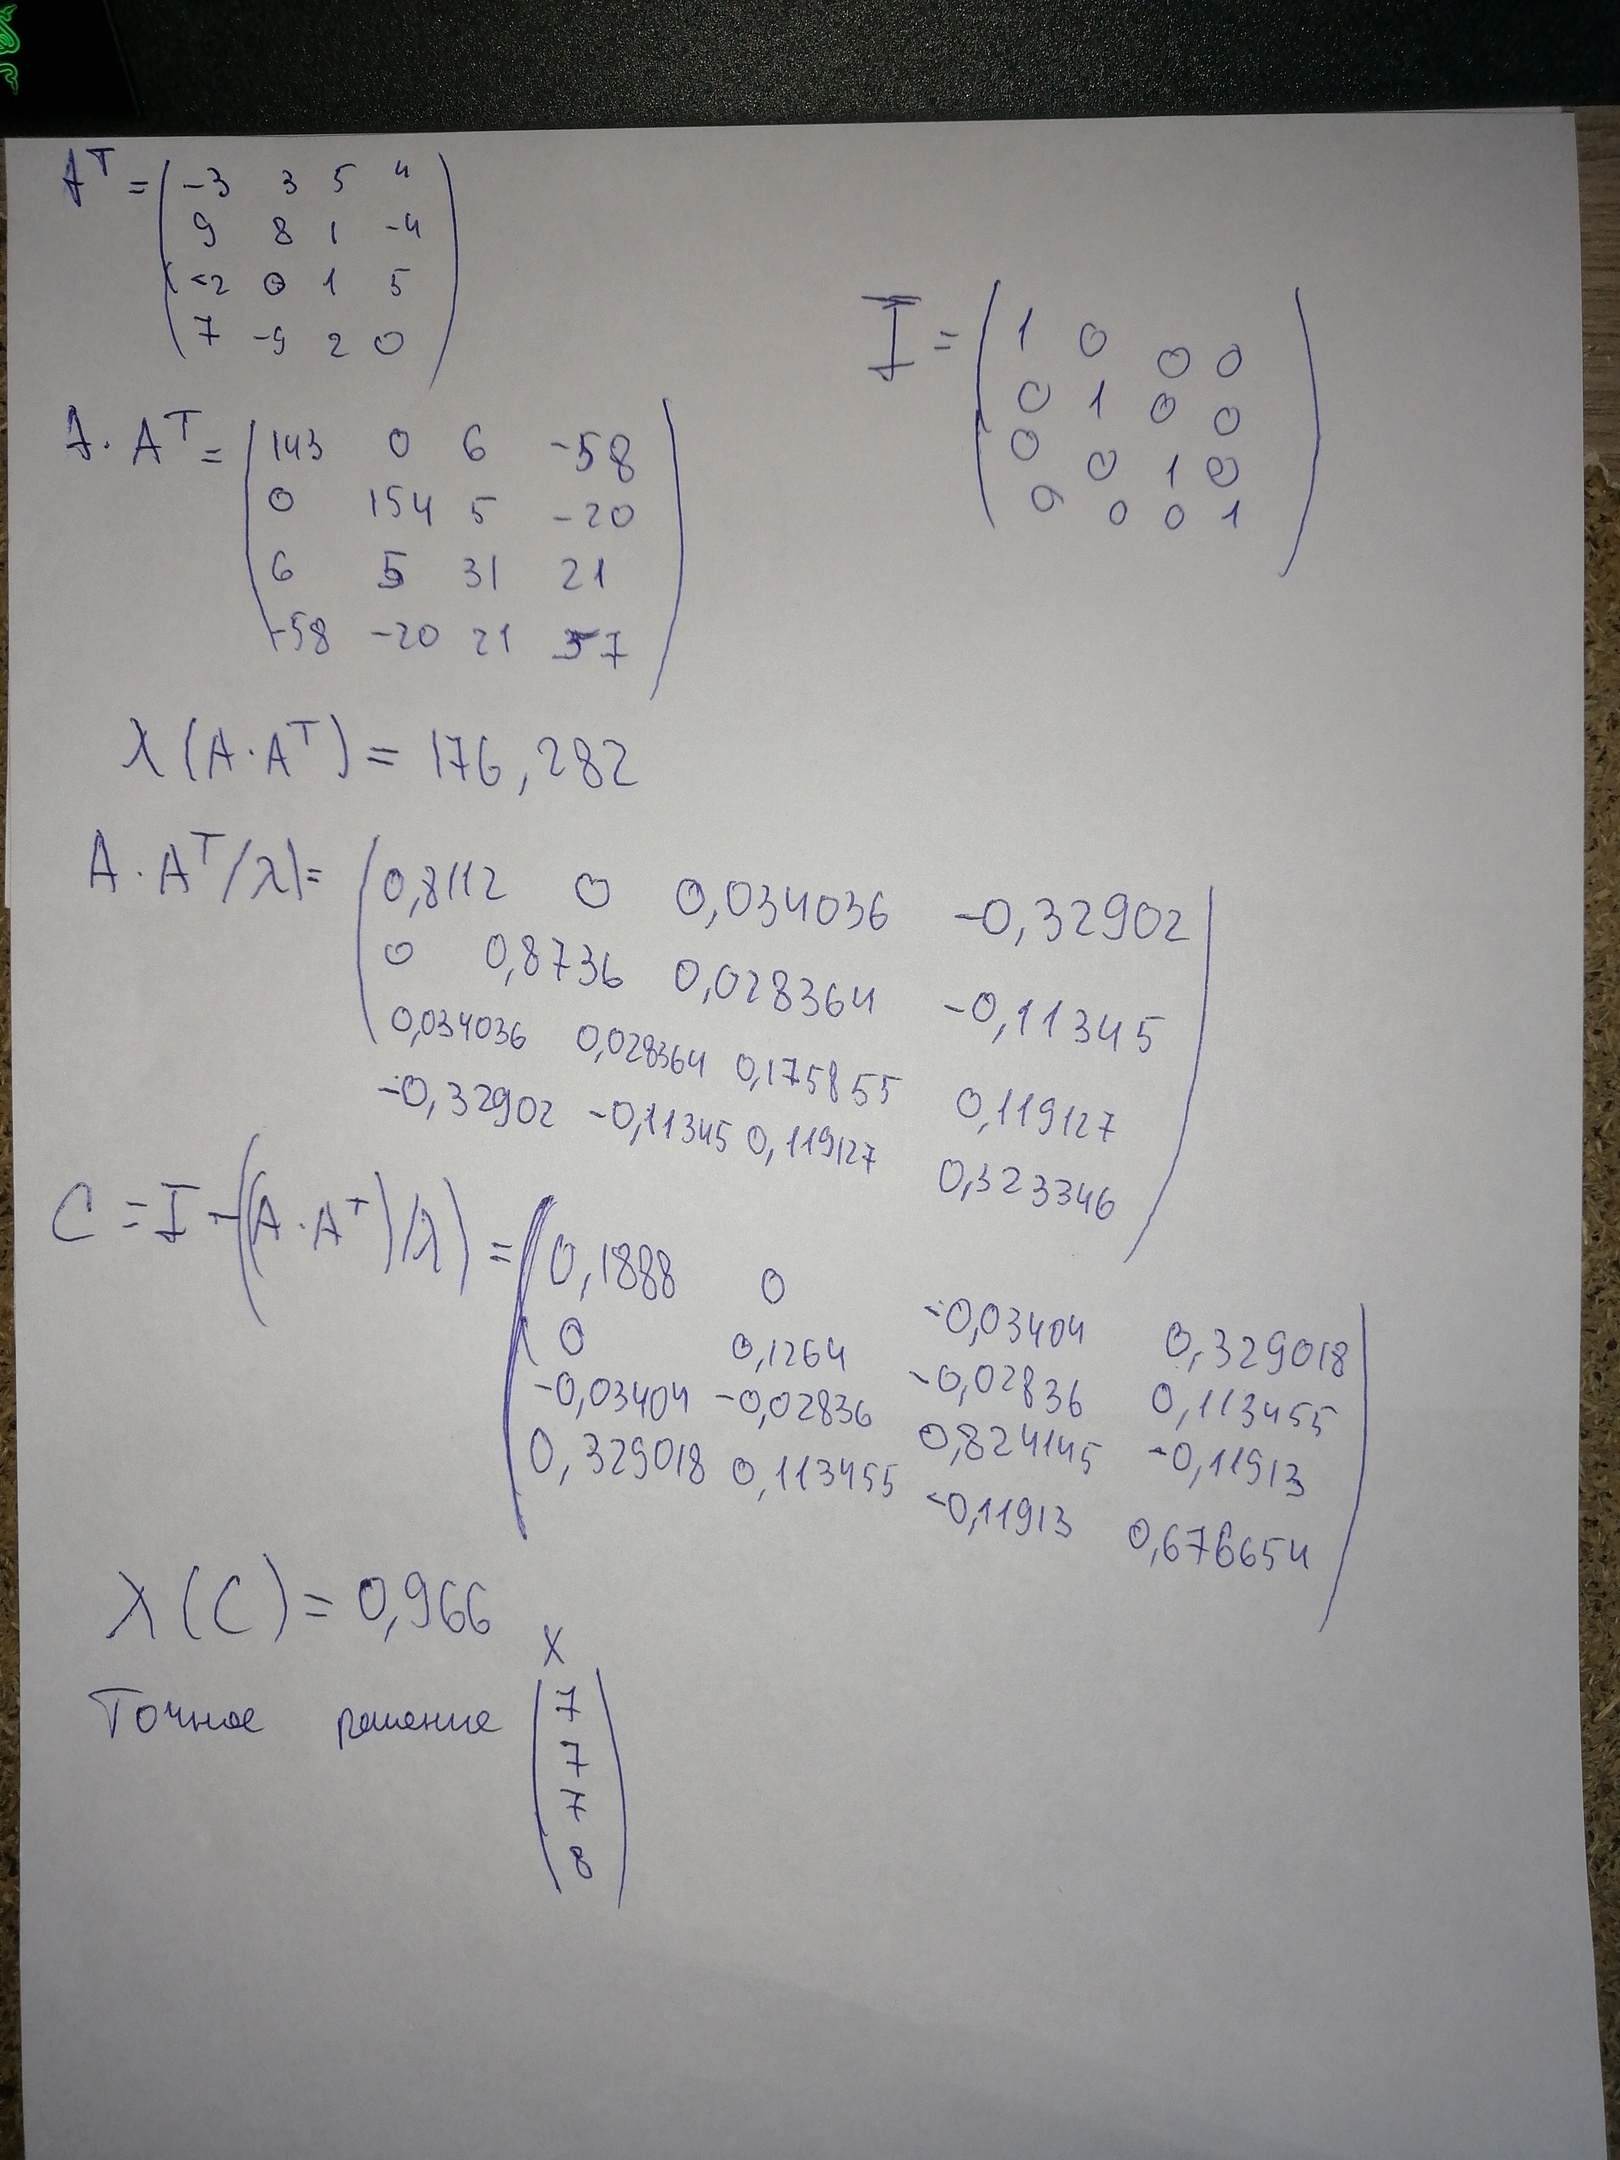 Aᵀ = ( -3 3 5 4
9 8 1 -4
-2 0 1 5
7 -9 2 0 )
I = ( 1 0 0 0
0 1 0 0
0 0 1 0
0 0 0 1 )
A · Aᵀ = ( 143 0 6 -58
0 154 5 -20
6 5 31 21
-58 -20 21 57 )
λ(A·Aᵀ) = 176,282
A · Aᵀ/λ) = ( 0,8112 0 0,034036 -0,32902
0 0,8736 0,028364 -0,11345
0,034036 0,028364 0,175855 0,119127
-0,32902 -0,11345 0,119127 0,323346 )
C = I - ((A·Aᵀ)/λ) = ( 0,1888 0 -0,03404 0,329018
0 0,1264 -0,02836 0,113455
-0,03404 -0,02836 0,824145 -0,11913
0,329018 0,113455 -0,11913 0,676654 )
λ(C) = 0,966
X
Точное решение ( 7
7
7
8 )